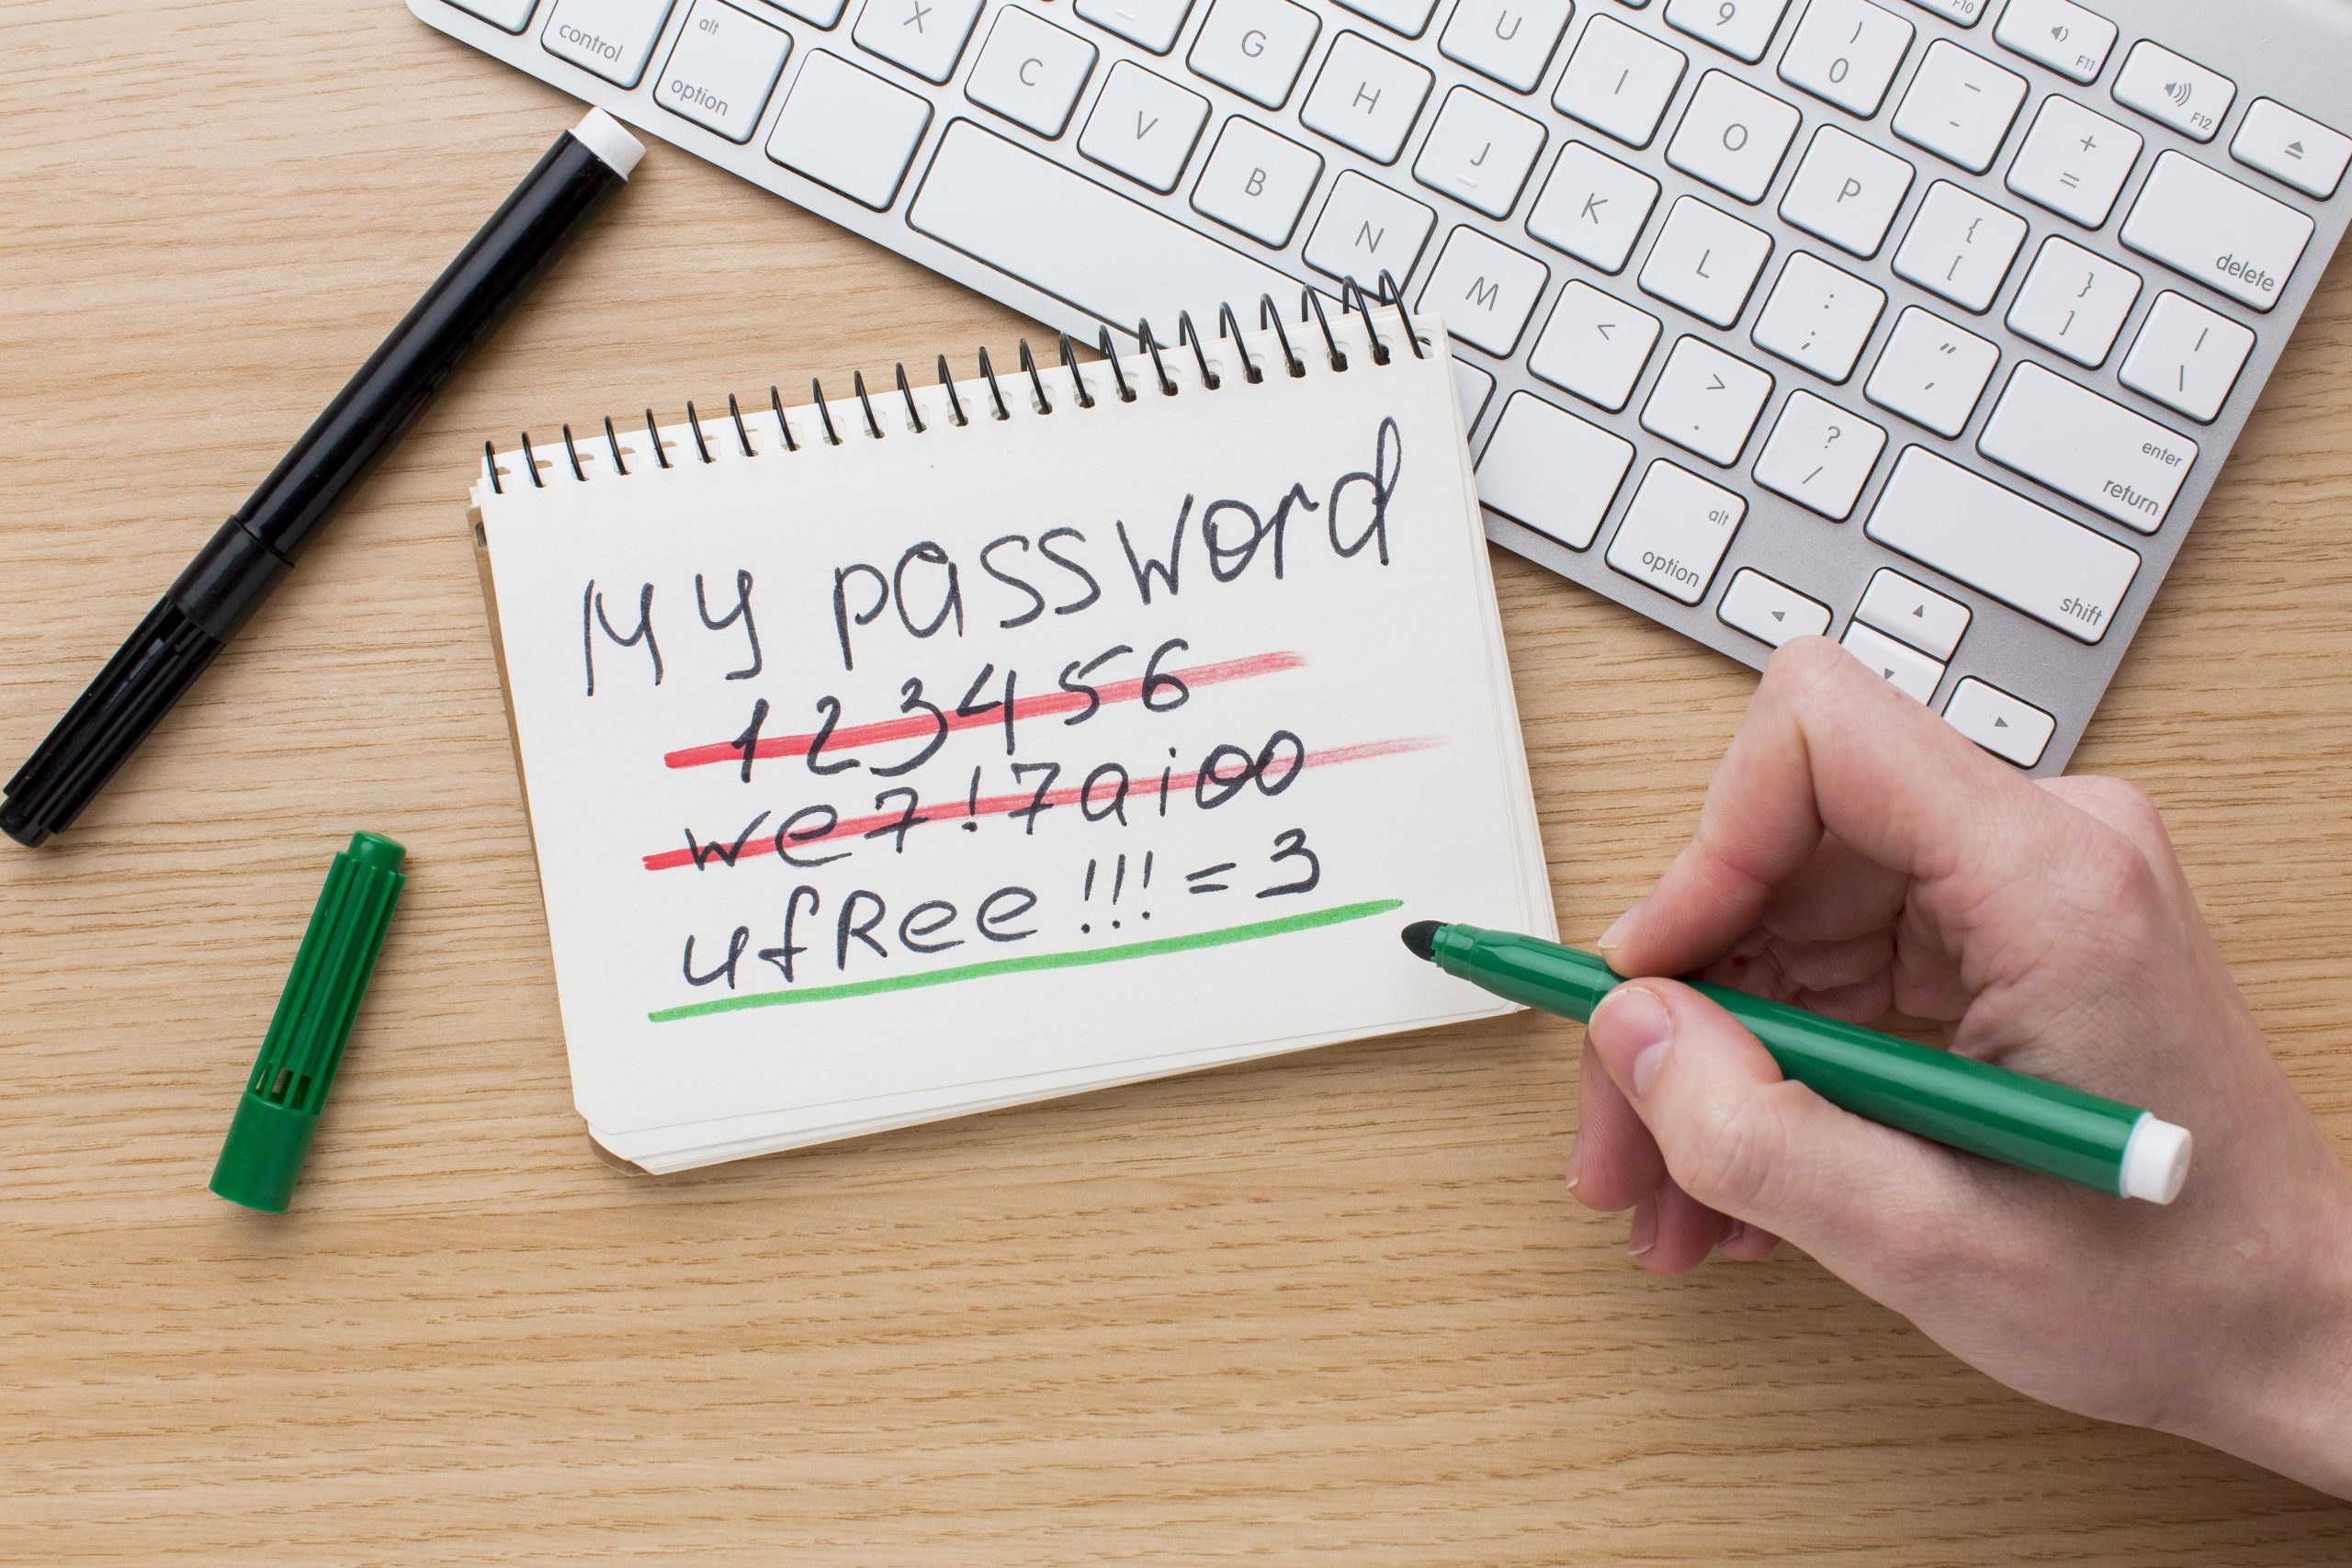 control
alt
option
X
C
V
G
B
H
N
U
J
M
I
K
<
9
O
L
>
.
)
0
P
:
;
?
/
alt
option
_
-
{
[
"
,
+
=
}
]
enter
return
shift
F10
F11
F12
delete
|
\
My password
123456
we7!7aioo
ufRee!!!=3